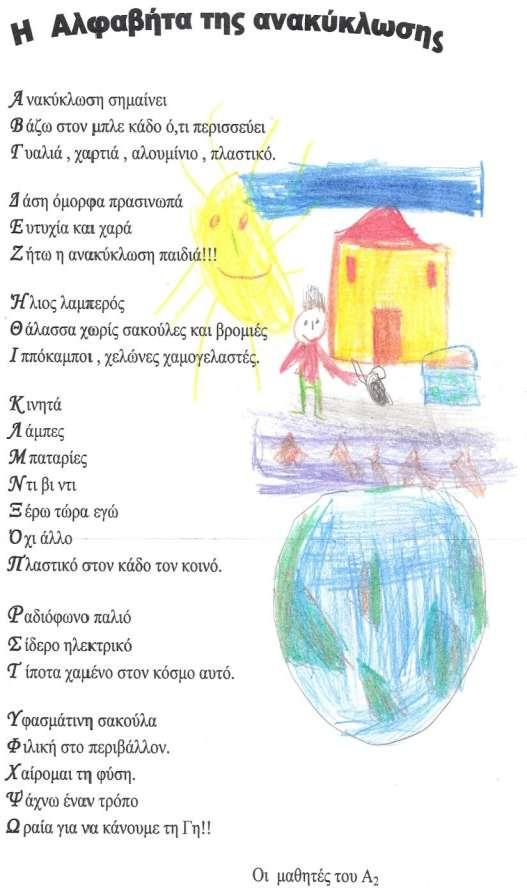 Η Αλφαβήτα της ανακύκλωσης
Ανακύκλωση σημαίνει
Βάζω στον μπλε κάδο ό,τι περισσεύει
Γυαλιά , χαρτιά , αλουμίνιο , πλαστικό.
Δάση όμορφα πρασινωπά
Ευτυχία και χαρά
Ζήτω η ανακύκλωση παιδιά!!!
Ήλιος λαμπερός
Θάλασσα χωρίς σακούλες και βρομιές
Ιππόκαμποι , χελώνες χαμογελαστές.
Κινητά
Λάμπες
Μπαταρίες
Ντι βι ντι
Ξέρω τώρα εγώ
Όχι άλλο
Πλαστικό στον κάδο τον κοινό.
Ραδιόφωνο παλιό
Σίδερο ηλεκτρικό
Τίποτα χαμένο στον κόσμο αυτό.
Υφασμάτινη σακούλα
Φιλική στο περιβάλλον.
Χαίρομαι τη φύση.
Ψάχνω έναν τρόπο
Ωραία για να κάνουμε τη Γη!!
Οι μαθητές του Α2